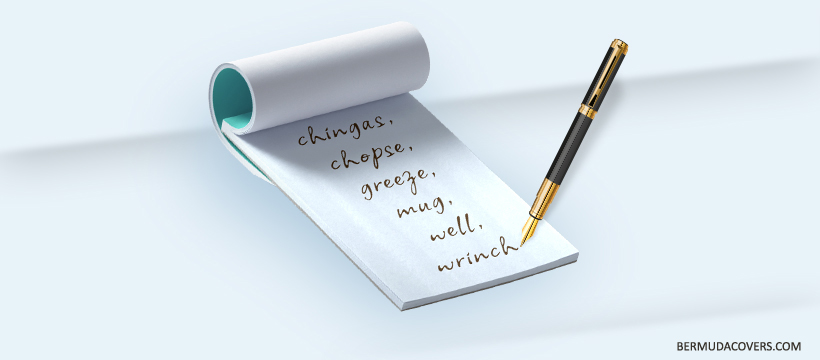 chingas,
chopse,
greeze,
mug,
well,
wrinch
BERMUDACOVERS.COM